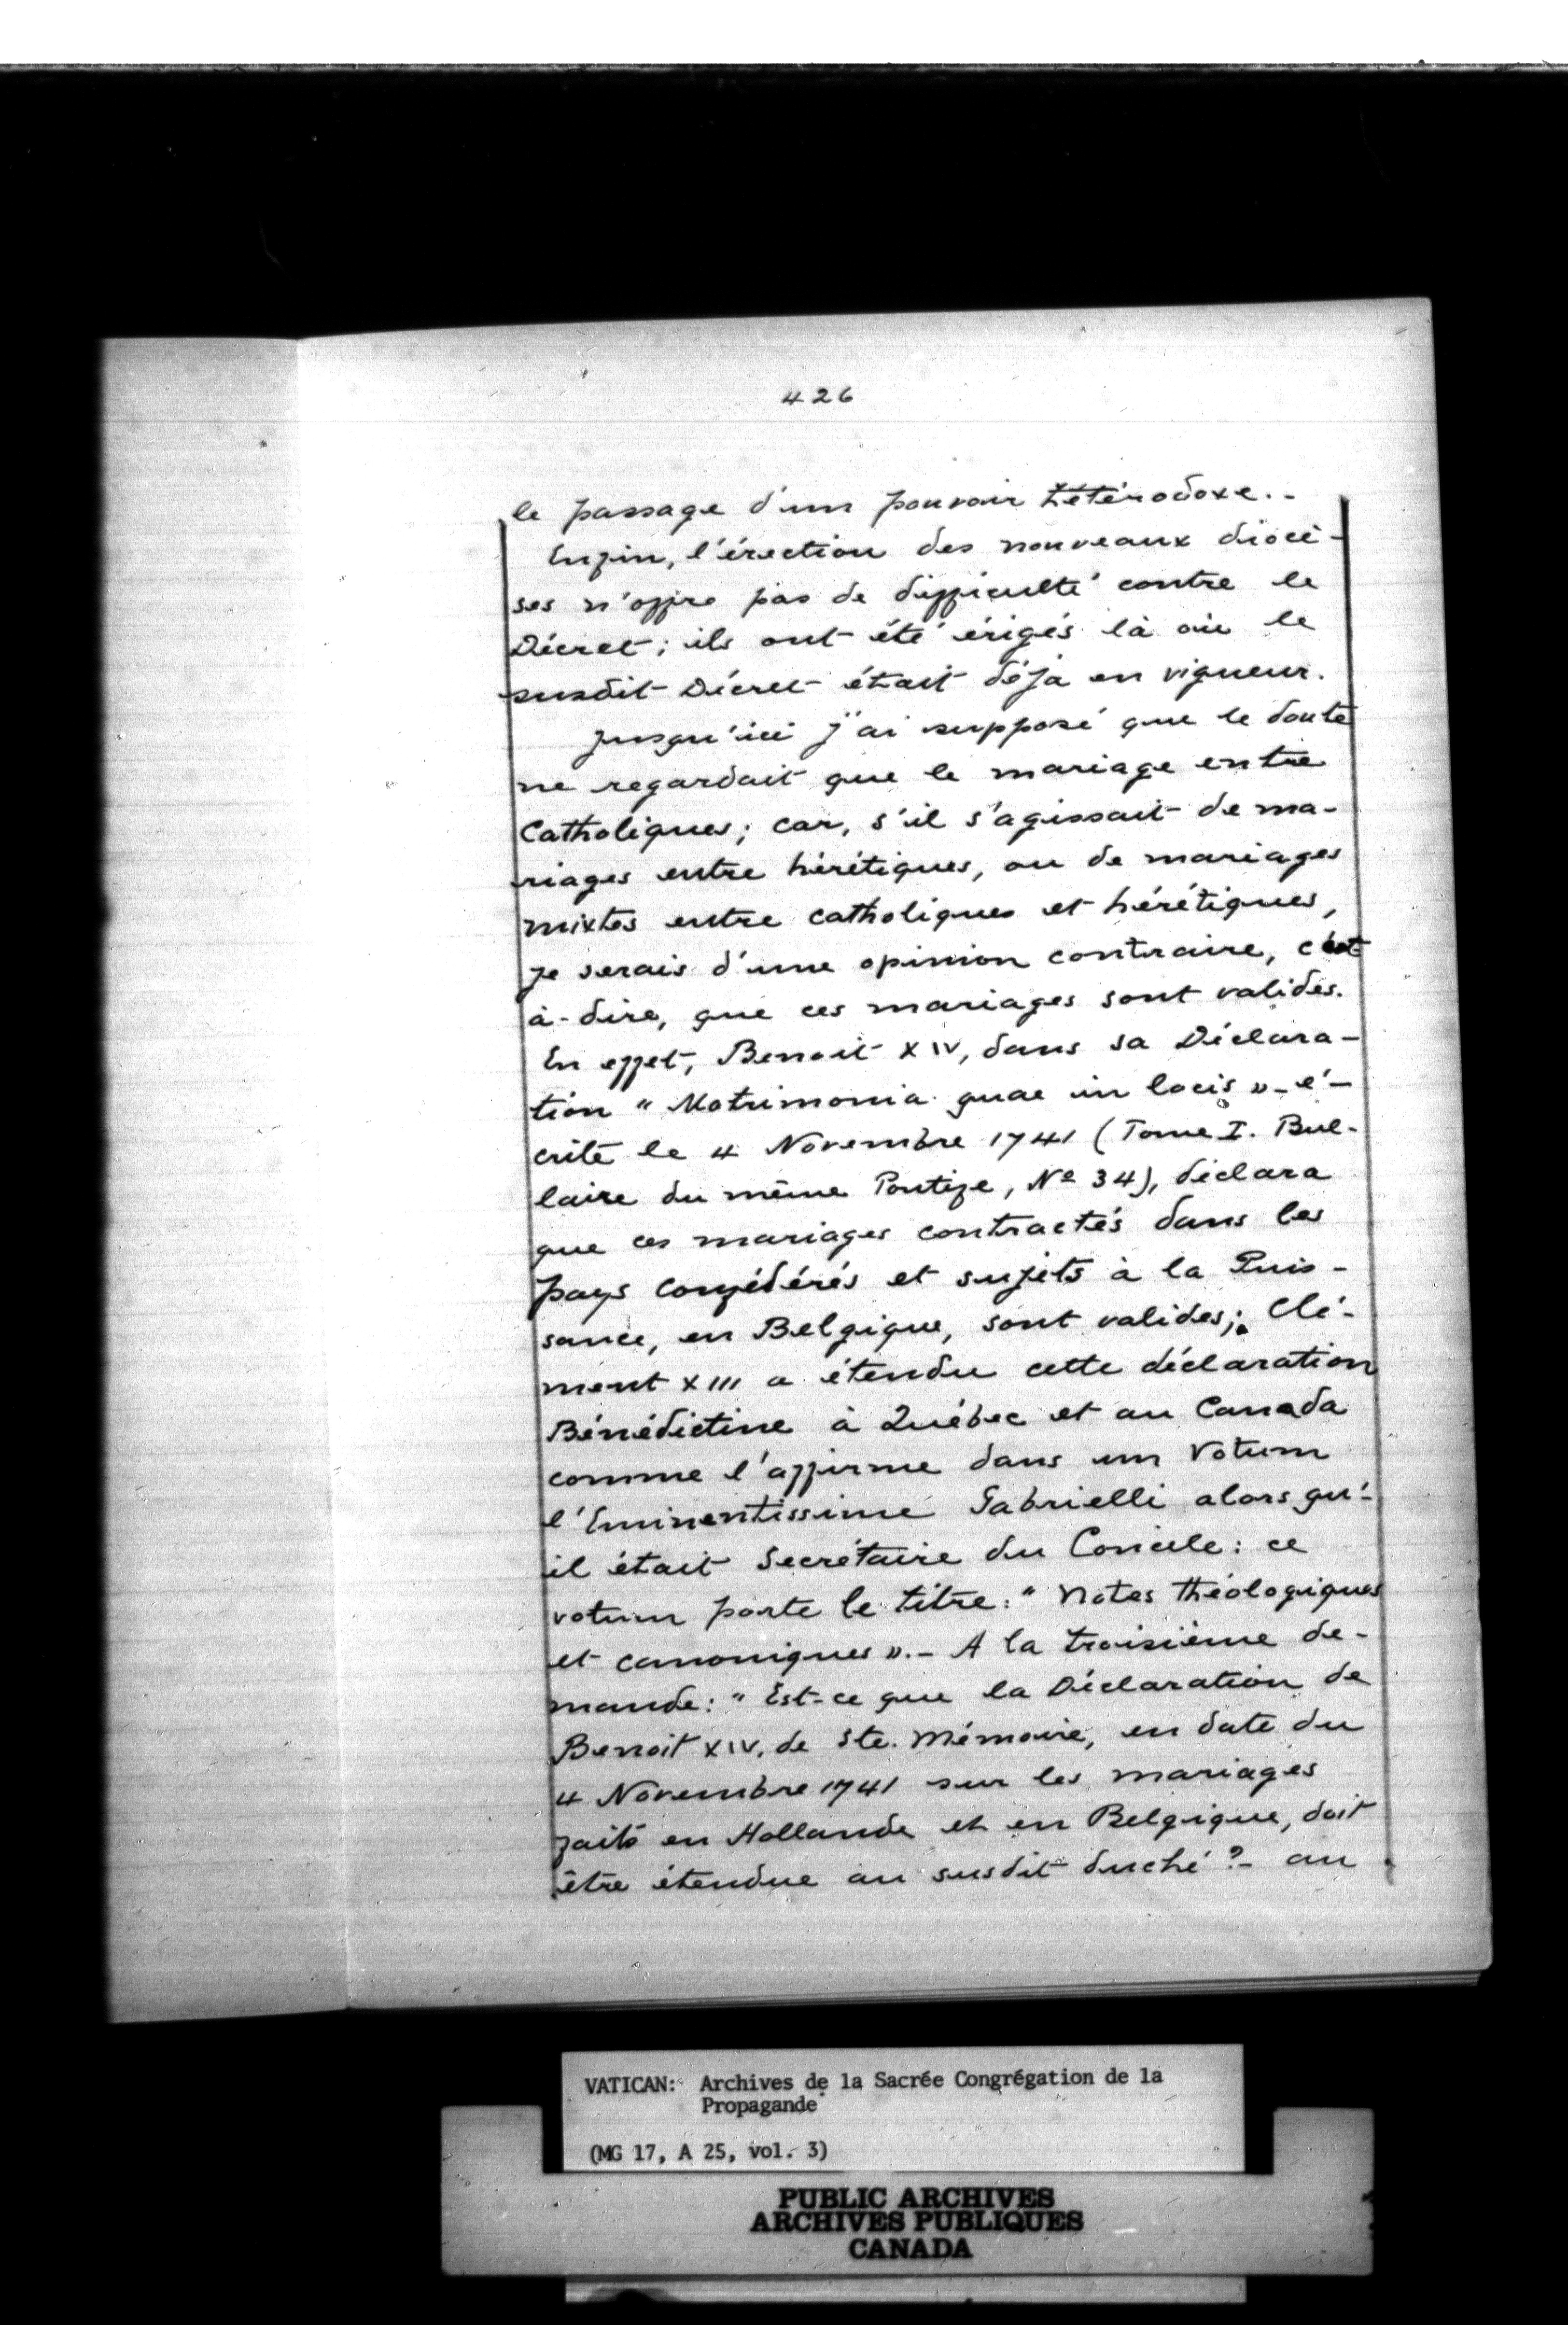 426
le passage d'un pouvoir hétérodoxe.-
Enfin, l'érection des nouveaux diocè-
ses n'offre pas de difficulté contre le
Décret; ils ont été érigés là où le
susdit Décret était déjà en vigueur.
Jusqu'ici j'ai supposé que le doute
ne regardait que le mariage entre
Catholiques; car, s'il s'agissait de ma-
riages entre hérétiques, ou de mariages
mixtes entre catholiques et hérétiques,
je serais d'une opinion contraire, c'est
à-dire, que ces mariages sont valides.
En effet, Benoit XIV, dans sa Déclara-
tion "Matrimonia quae in locis"- é-
crite le 4 Novembre 1741 (Tome I. Bul-
laire du même Pontife, Nº 34), déclara
que ces mariages contractés dans les
pays confédérés et sujets à la Puis-
sance, en Belgique, sont valides; Clé-
ment XIII a étendu cette déclaration
Bénédictine à Québec et au Canada
comme l'affirme dans un Votum
l'Eminentissime Gabrielli alors qu'-
il était Secrétaire du Concile: ce
votum porte le titre: "Notes théologiques
et canoniques".- A la troisième de-
mande: "Est-ce que la Déclaration de
Benoit XIV, de Ste. Mémoire, en date du
4 Novembre 1741 sur les mariages
faits en Hollande et en Belgique, doit
être étendue au susdit duché?- au
VATICAN: Archives de la Sacrée Congrégation de la
Propagande
(MG 17, A 25, vol. 3)
PUBLIC ARCHIVES
ARCHIVES PUBLIQUES
CANADA